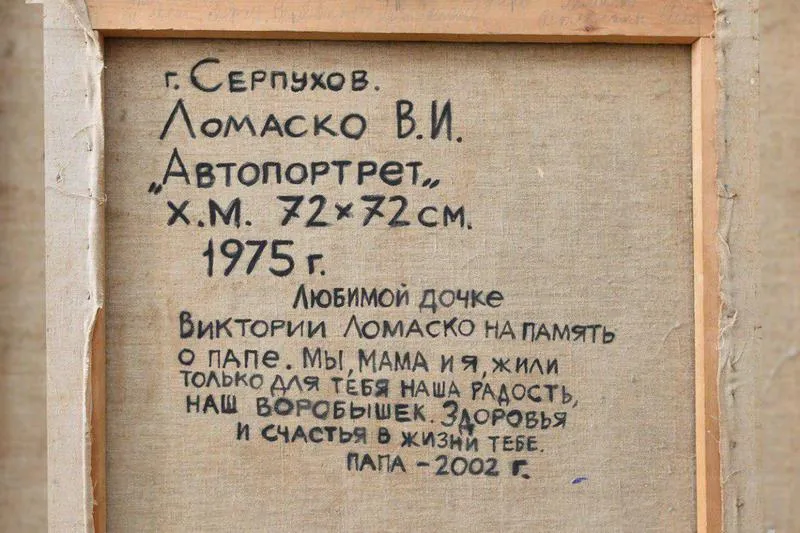 г. Серпухов.
Ломаско В.И.
„Автопортрет„
х.м. 72×72 см.
1975 г.
Любимой дочке
Виктории Ломаско на память
о папе. Мы, мама и я, жили
только для тебя наша радость,
наш воробышек. Здоровья
и счастья в жизни тебе.
Папа – 2002 г.